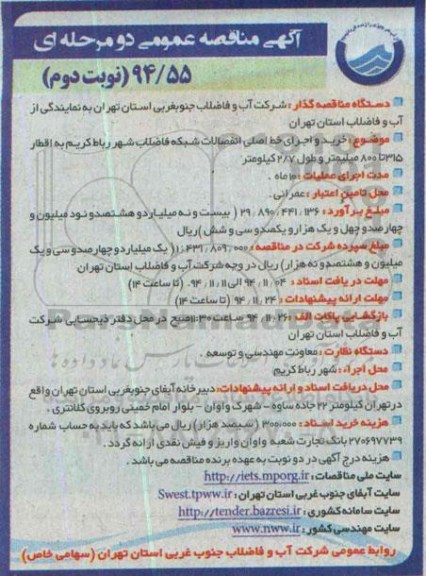 آگهی مناقصه عمومی دو مرحله ای
۹۴/۵۵ (نوبت دوم)
دستگاه مناقصه گذار : شرکت آب و فاضلاب جنوبغربی استان تهران به نمایندگی از
آب و فاضلاب استان تهران
موضوع : خرید و اجرای خط اصلی انفصالات شبکه فاضلاب شهر رباط کریم به اقطار
۳۱۵ تا ۸۰۰ میلیمتر و طول ۲/۷ کیلومتر
مدت اجرای عملیات : ۱۰ ماه .
محل تامین اعتبار : عمرانی .
مبلغ برآورد : ۲۹/۸۹۰/۴۴۱/۱۳۶ ( بیست و نه میلیارد و هشتصد و نود میلیون و
چهارصد و چهل و یک هزار و یکصد و سی و شش ) ریال
مبلغ سپرده شرکت در مناقصه : ۱/۴۳۱/۸۰۹/۰۰۰ ( یک میلیارد و چهارصد و سی و یک
میلیون و هشتصد و نه هزار) ریال در وجه شرکت آب و فاضلاب استان تهران
مهلت دریافت اسناد : ۹۴/۱۱/۰۴ الی ۹۴/۱۱/۰۱ (تا ساعت ۱۴)
مهلت ارائه پیشنهادات : ۹۴/۱۱/۲۴ (تا ساعت ۱۴)
بازگشایی پاکات الف : ۹۴/۱۱/۲۶ ساعت ۱۱:۳۰ صبح در محل دفتر ذیحسابی شرکت
آب و فاضلاب استان تهران
دستگاه نظارت : معاونت مهندسی و توسعه .
محل اجراء : شهر رباط کریم
محل دریافت اسناد و ارائه پیشنهادات : دبیرخانه آبفای جنوبغربی استان تهران واقع
در تهران کیلومتر ۲۲ جاده ساوه – شهرک واوان – بلوار امام خمینی روبروی کلانتری .
هزینه خرید اسناد : ۳۰۰/۰۰۰ (سیصد هزار) ریال می باشد که باید به حساب شماره
۲۷۰۶۹۷۷۳۹ بانک تجارت شعبه واوان واریز و فیش نقدی ارائه گردد .
هزینه درج آگهی در دو نوبت به عهده برنده مناقصه می باشد .
سایت ملی مناقصات : http://iets.mporg.ir
سایت آبفای جنوب غربی استان تهران : Swest.tpww.ir
سایت سامانه کشوری : http://tender.bazresi.ir
سایت مهندسی کشور : www.nww.ir
روابط عمومی شرکت آب و فاضلاب جنوب غربی استان تهران (سهامی خاص)